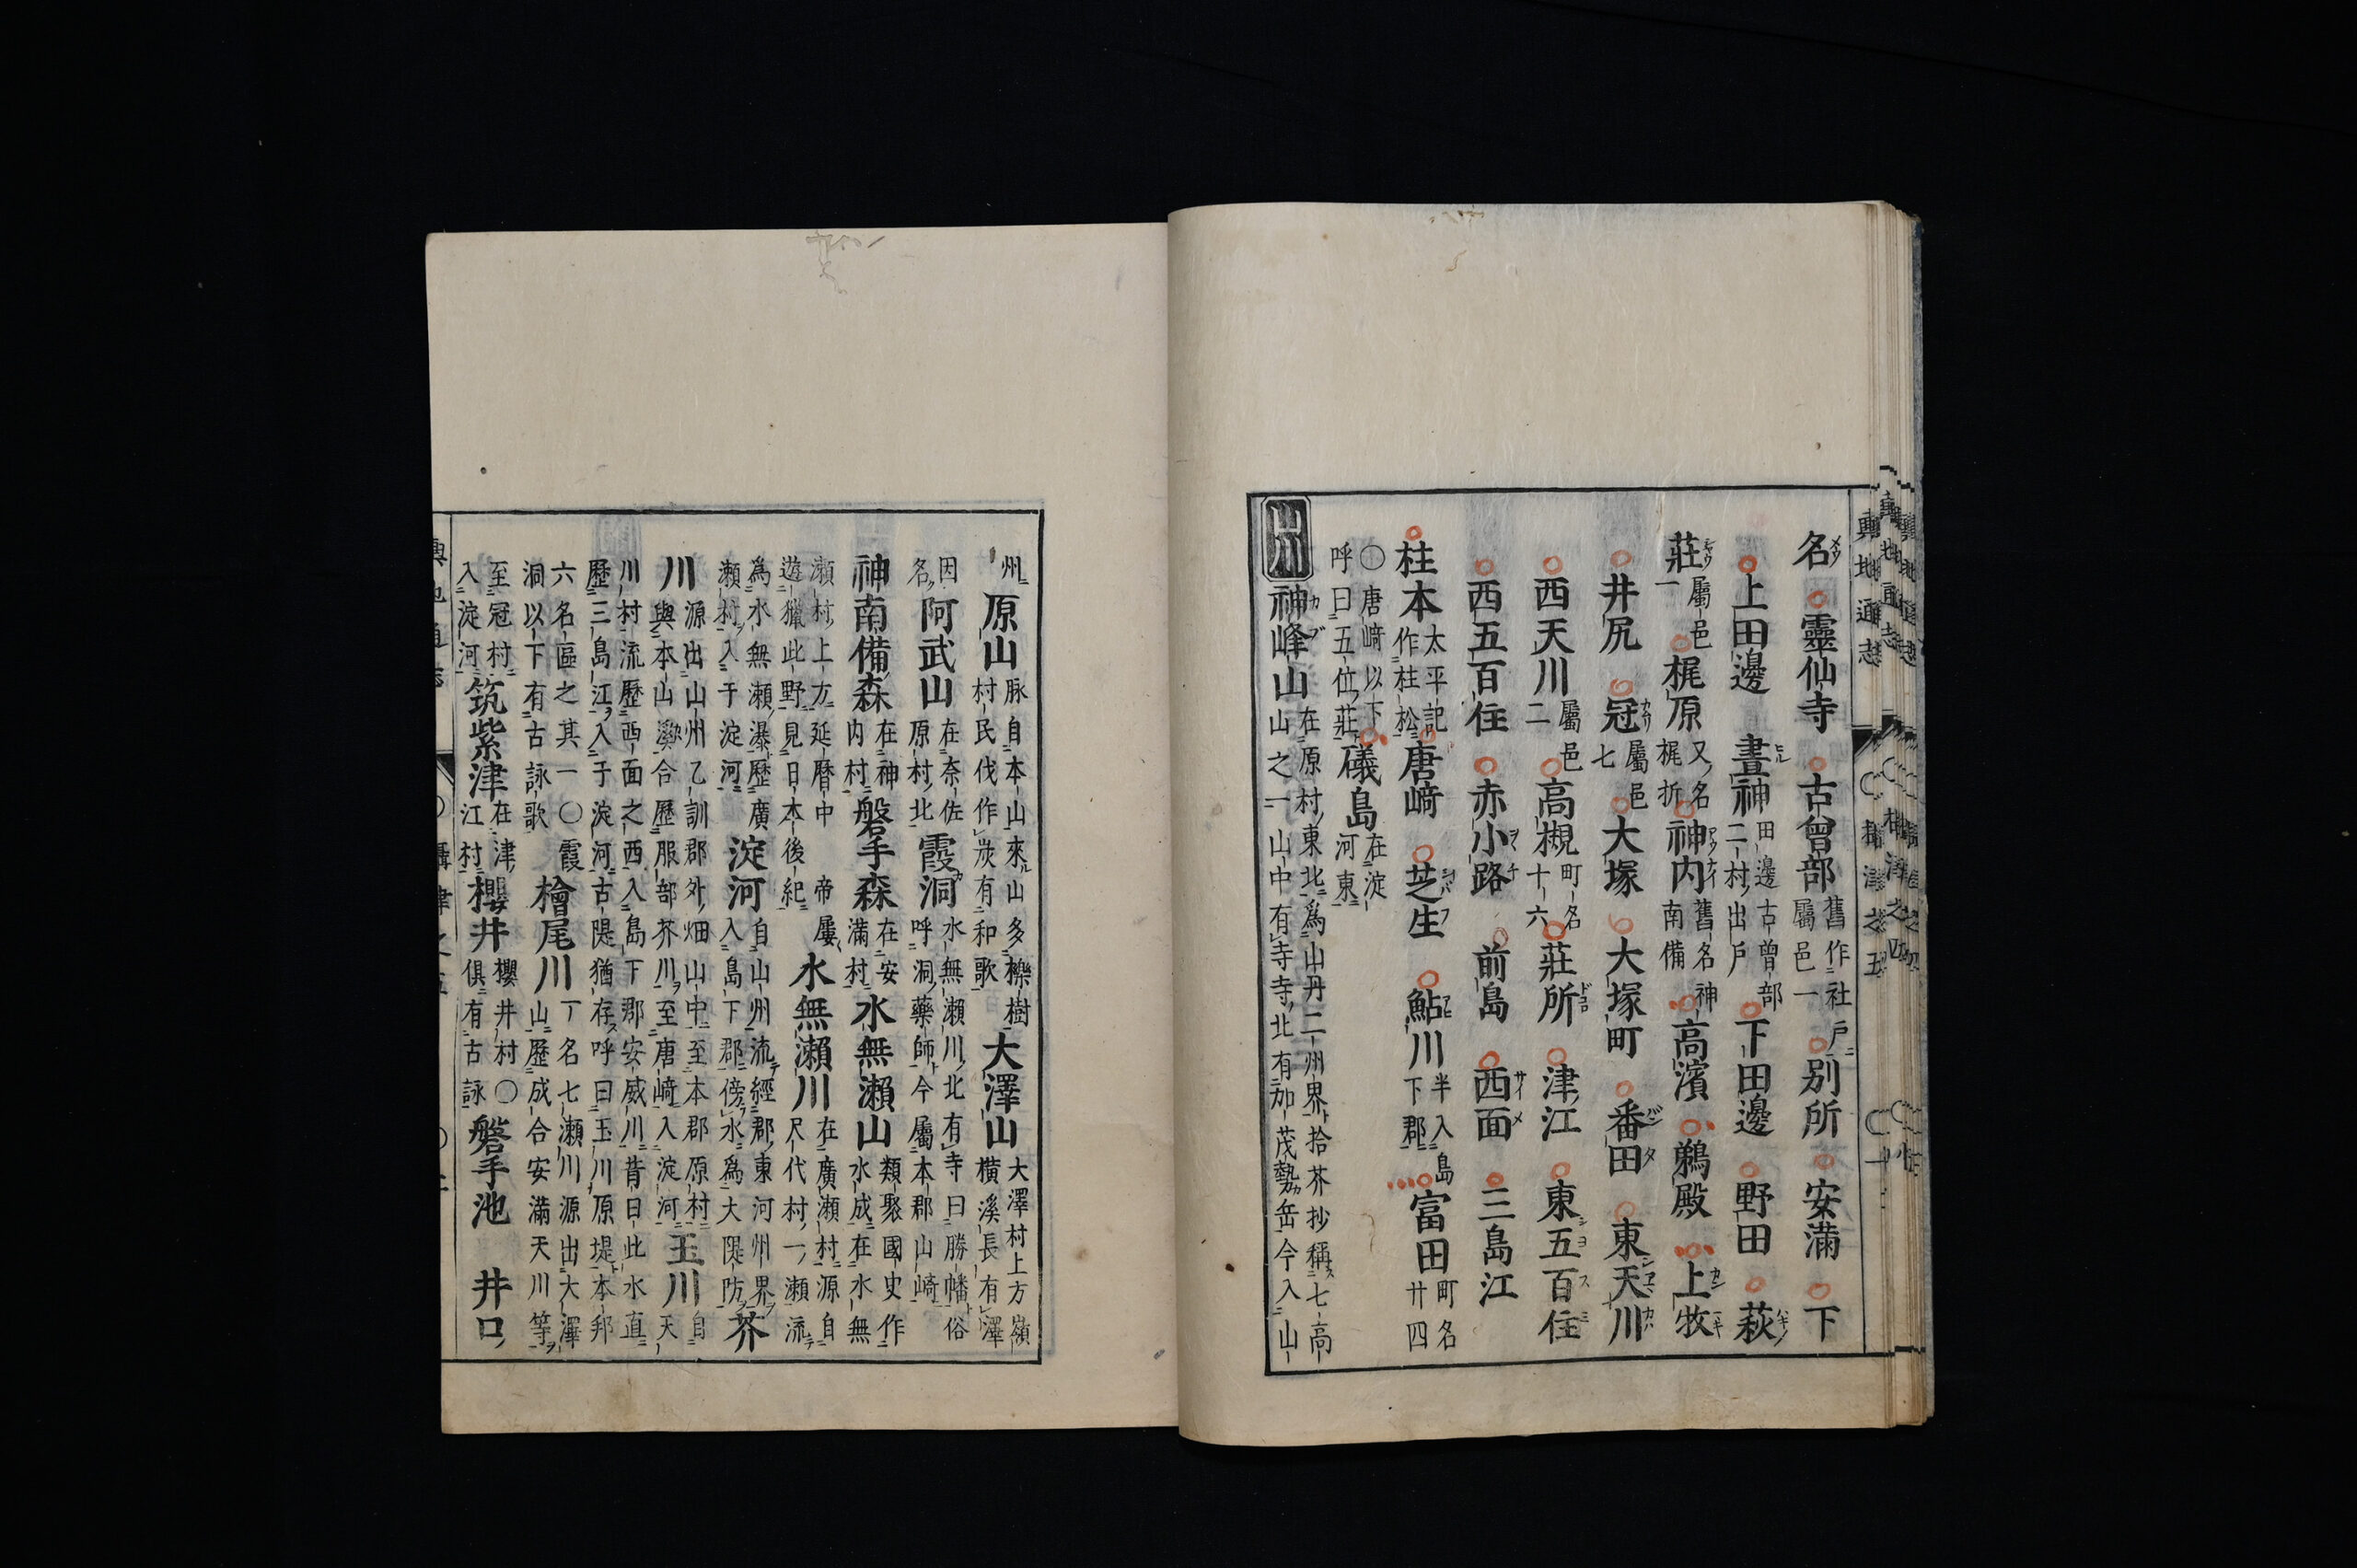 名 靈仙寺 古曾部 舊作社戸屬邑一 別所 安滿 下
上田邊 晝神 田邊古曾部二村出戸 下田邊 野田 萩
莊 屬邑一 梶原 又名梶折 神内 舊名神南備 高濱 鵜殿 上牧
井尻 冠 屬邑七 大塚 大塚町 番田 東天川
西天川 屬邑二 高槻 町名十六 莊所 津江 東五百住
西五百住 赤小路 前島 西面 三島江
柱本 太平記作柱松 唐﨑 芝生 鮎川 半入島下郡 富田 町名廿四
○唐﨑以下呼曰五位莊 礒島 在淀河東
山川 神峰山 在原村東北爲山丹二州界拾芥抄稱七高山之一山中有寺寺北有加茂勢岳今入山
州 原山 脉自本山來山多檪樹村民伐作炭有和歌 大澤山 大澤村上方嶺横溪長有澤
因名 阿武山 在奈佐原村北 霞洞 水無瀬川北有寺曰勝幡俗呼洞藥師今屬本郡山崎
神南備森 在神内村 磐手森 在安滿村 水無瀬山 類聚國史作水成在水無
瀬村上方延暦中帝屢遊獵此野見日本後紀 水無瀬川 在廣瀬村源自尺代村一瀬流
爲水無瀬瀑歷廣瀬村入于淀河 淀河 自山州流經郡東河州界入島下郡傍水爲大隄防 芥
川 源出山州乙訓郡外畑山中至本郡原村與本山溪合歷服部芥川至唐﨑入淀河 玉川 自天
川村流歷西面之西入島下郡安威川昔日此水直歷三島江入于淀河古隄猶存呼曰玉川原堤本邦
六名區之其一○霞洞以下有古詠歌 檜尾川 一名七瀬川源出大澤山歷成合安滿天川等
至冠村入淀河 筑紫津 在津江村 櫻井 櫻井村○俱有古詠 磐手池 井口
輿地通志 攝津之五